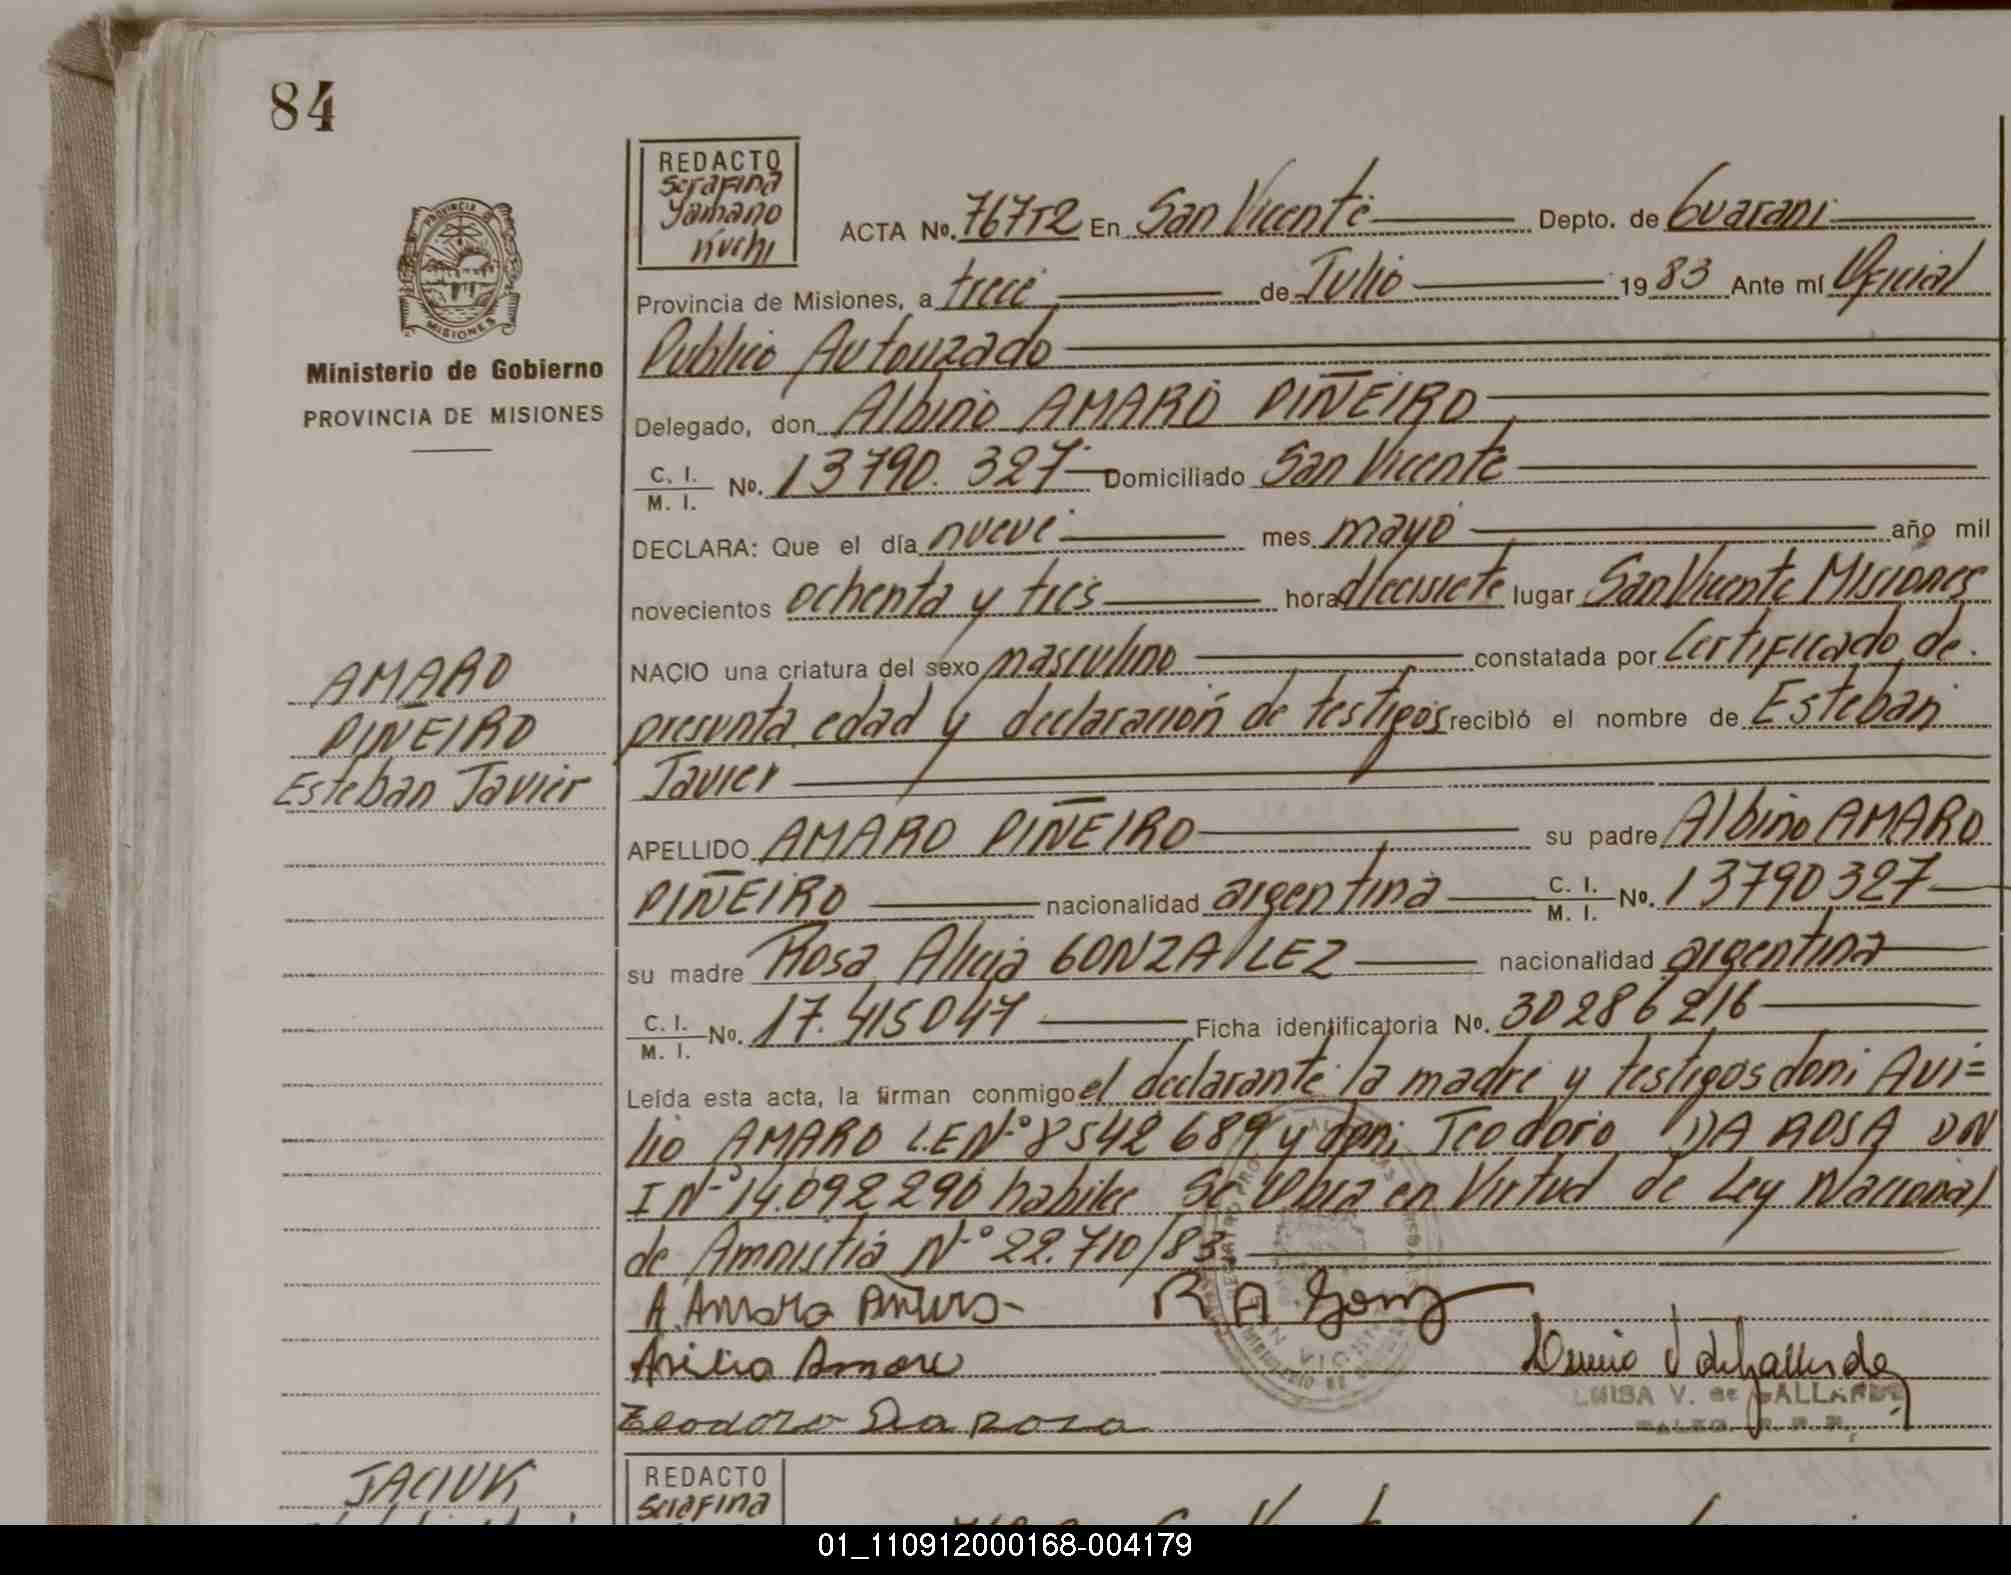 84
REDACTO
Serafina
Yamano
ACTA No. 767T2 En San Vicente Depto. de Guarani
Provincia de Misiones, a trece de Julio 1983 Ante mí Oficial
Publico Autorizado
PROVINCIA DE
MISIONES
Ministerio de Gobierno
PROVINCIA DE MISIONES
Delegado, don Albino AMARO PIÑEIRO
C. I.
M. I. No. 13790.327 Domiciliado San Vicente
DECLARA: Que el día nueve mes mayo año mil
novecientos ochenta y tres hora diecisiete lugar San Vicente Misiones
NACIO una criatura del sexo masculino constatada por Certificado de
presunta edad y declaración de testigos recibió el nombre de Esteban
Javier
AMARO
PIÑEIRO
Esteban Javier
APELLIDO AMARO PIÑEIRO su padre Albino AMARO
PIÑEIRO nacionalidad argentina C. I.
M. I. No. 13790327
su madre Rosa Alicia GONZALEZ nacionalidad argentina
C. I.
M. I. No. 17.415047 Ficha identificatoria No. 30286216
Leída esta acta, la firman conmigo el declarante la madre y testigos don: Avi=
lio AMARO L.E Nº 8542689 y don: Teodoro DA ROSA DN
I Nº 14.092290 habiles Se Obra en Virtud de Ley Nacional
de Amnistia Nº 22.710/83
A. Amaro Piñeiro
R A Gonz
Avilio Amaro
LUISA V. de GALLARDO
Teodoro Da Rosa
JACIUK
REDACTO
Serafina
01_110912000168-004179